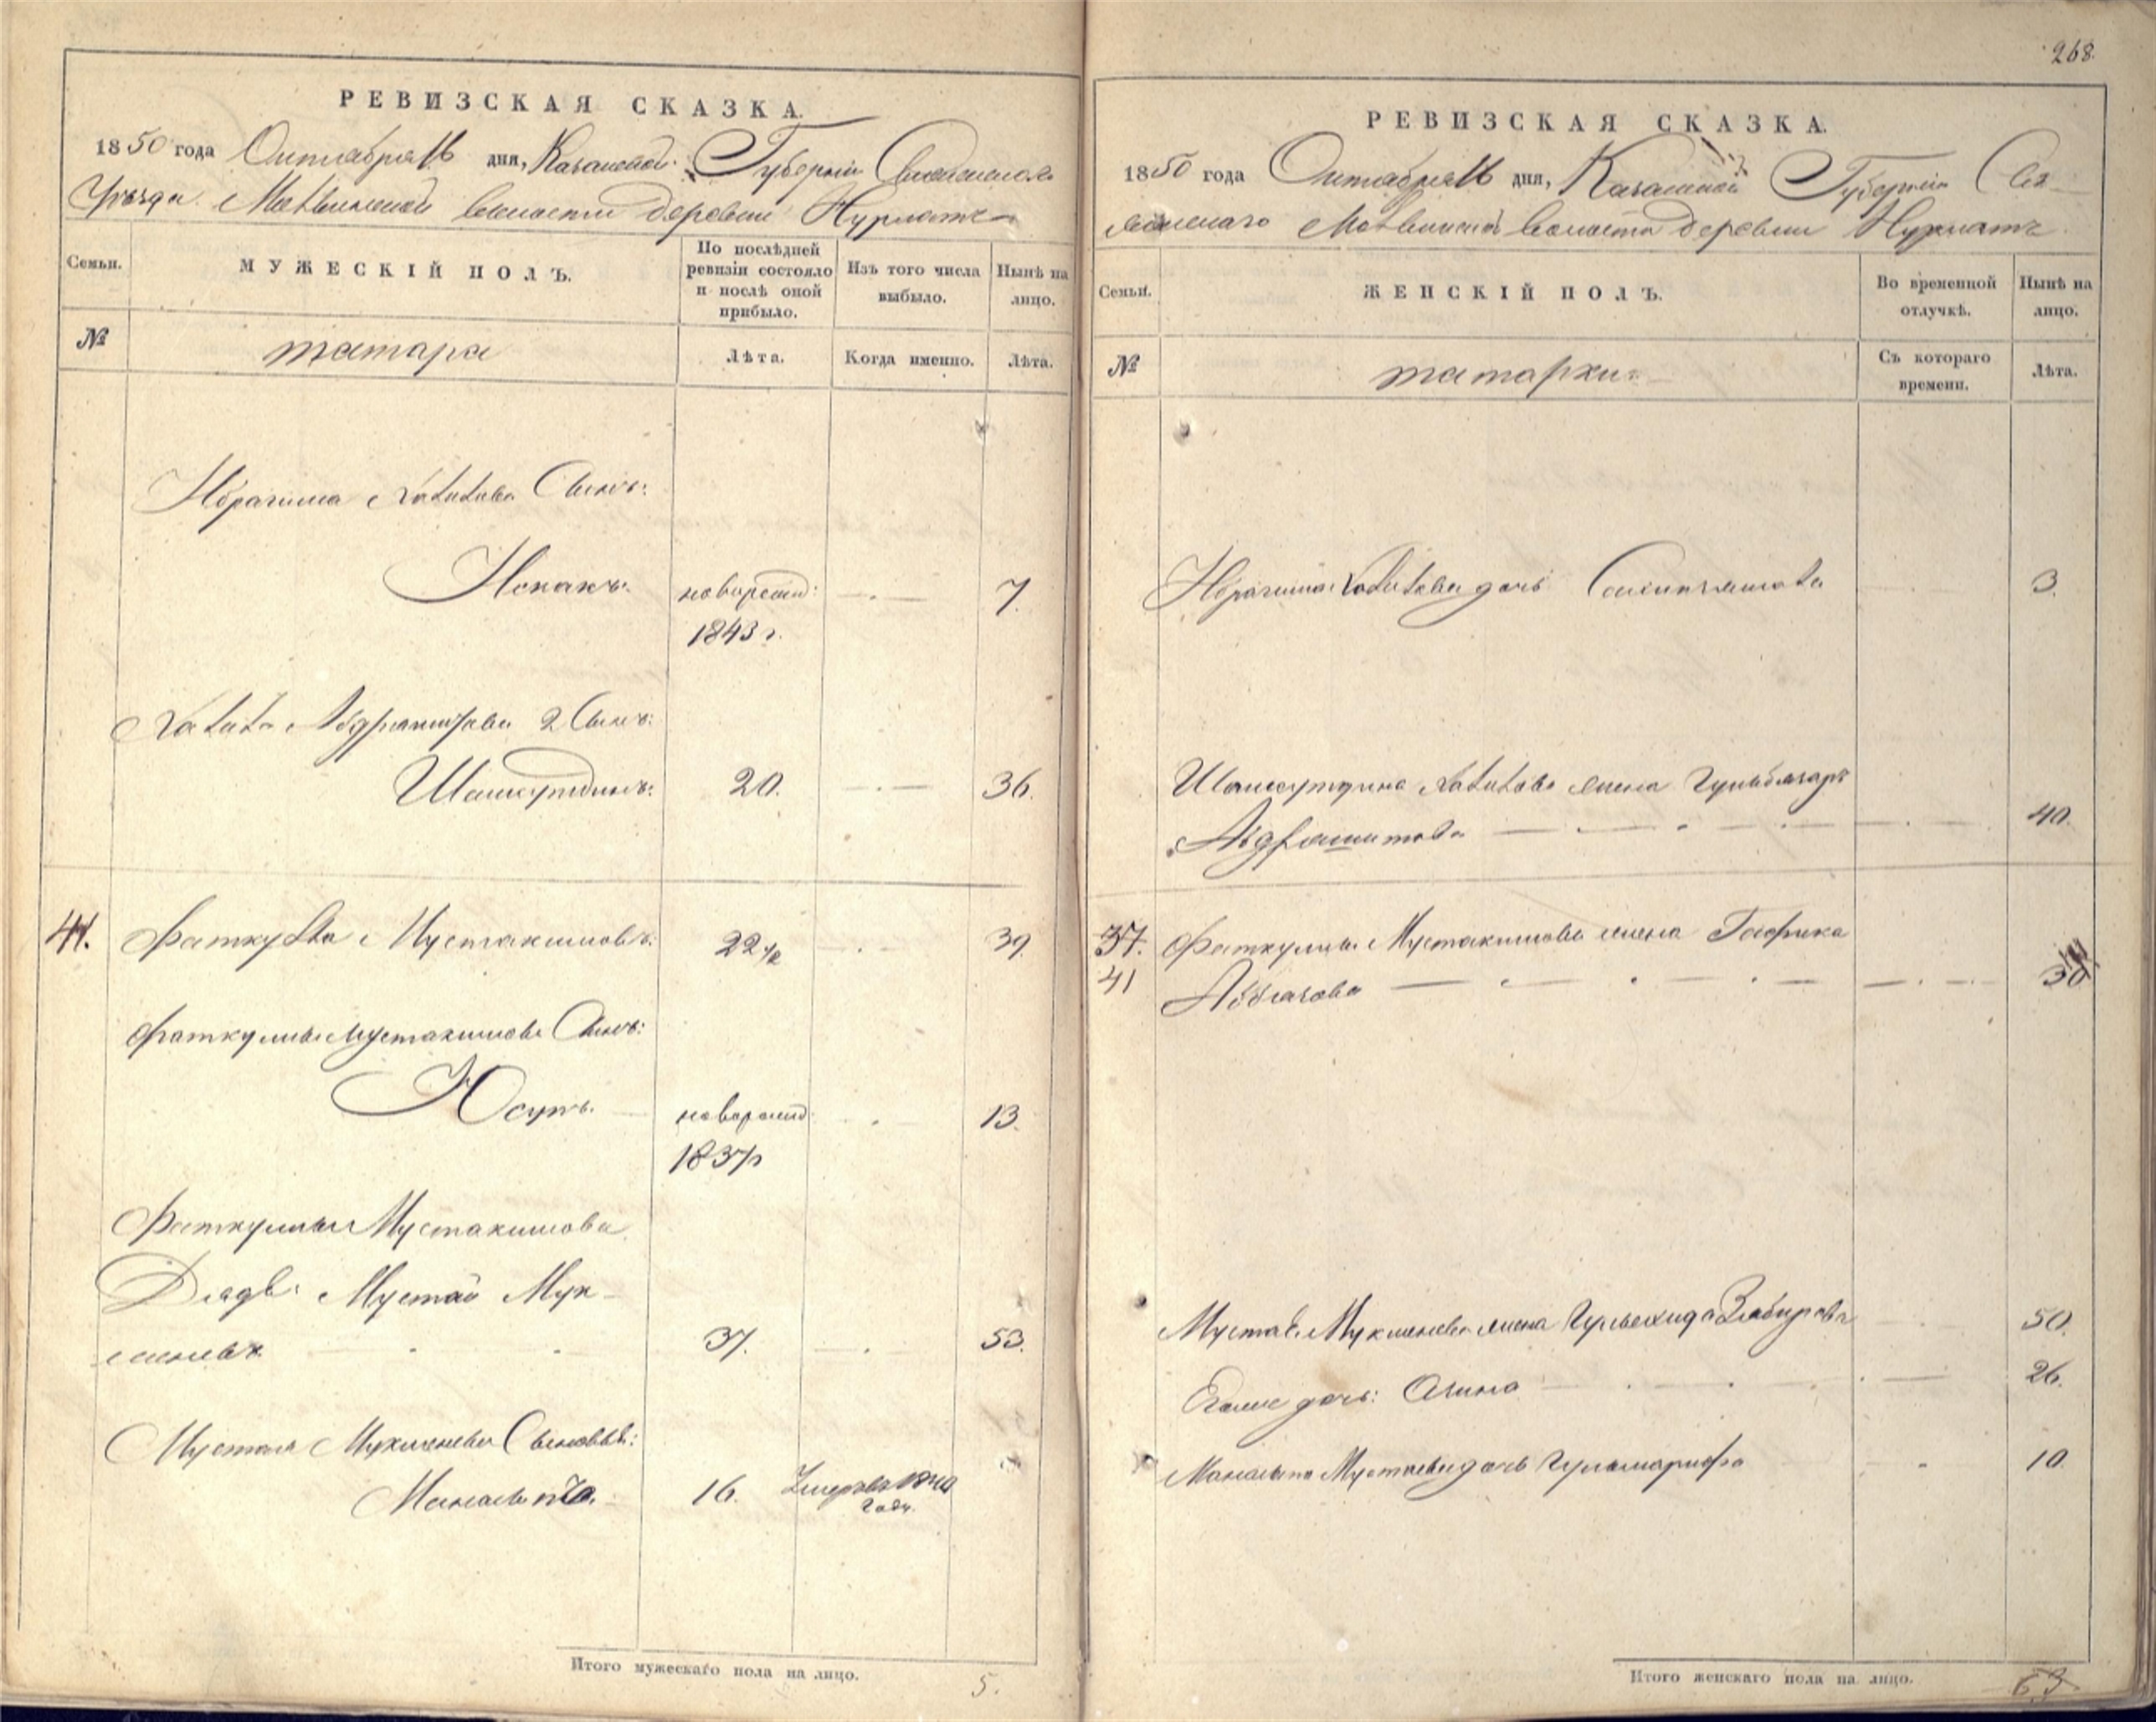 РЕВИЗСКАЯ СКАЗКА.
1850 года Октября 16 дня, Казанской Губернии Свіяжскаго
Уѣзда Молвинской волости деревни Нурлатъ
Семьи.
МУЖЕСКІЙ ПОЛЪ.
По послѣдней ревизіи состояло и послѣ оной прибыло.
Изъ того числа выбыло.
Нынѣ на лицо.
№
татара
Лѣта.
Когда именно.
Лѣта.
Ибрагима Хабибова Сынъ:
Исхакъ: новорожд: 7.
1843 г.
Хабиба Абдрашитова 2 Сынъ:
Шамсутдинъ: 20. 36.
41. Фаткулла Мустакимовъ: 22 1/2 39.
Фаткуллы Мустакимова Сынъ:
Юсупъ. новорожд: 13.
1837 г
Фаткуллы Мустакимова
Дядя: Мустай Мук-
меневъ 37. 53.
Мустая Мукменева Сыновья:
16. Умеръ въ 1840
году.
Итого мужескаго пола на лицо. 5.
268.
РЕВИЗСКАЯ СКАЗКА.
1850 года Октября 16 дня, Казанской Губерніи Свія-
жскаго Молвинской волости деревни Нурлатъ
Семьи.
ЖЕНСКІЙ ПОЛЪ.
Во временной отлучкѣ.
Нынѣ на лицо.
№
татарки
Съ котораго времени.
Лѣта.
Ибрагима Хабибова дочь 3.
Шамсутдина Хабибова жена
Абдрашитова 40.
37. Фаткуллы Мустакимова жена Гафика
41
Мустая Мукменева жена 50.
Его же дочь: 26.
Мустаева дочь 10.
Итого женскаго пола на лицо.